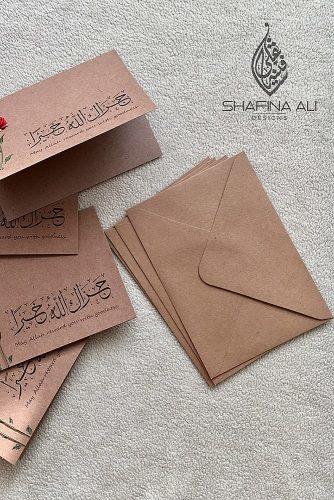 SHAFINA ALI
DESIGNS
جزاك الله خيرا
May Allah reward you with goodness
جزاك الله خيرا
May Allah reward you with goodness
جزاك الله خيرا
May Allah reward you with goodness